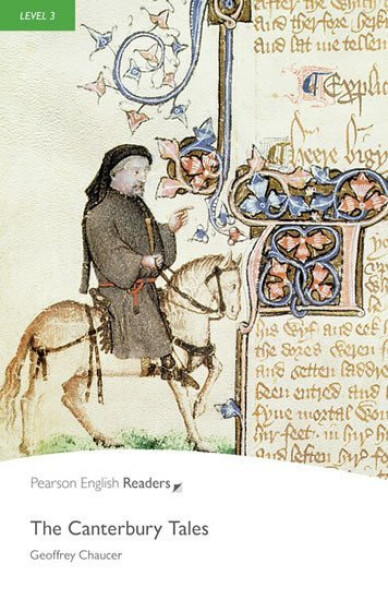 LEVEL 3
after the Which
and therfore her
and lat me tellen
Explic
heere bigy
his wyf and eek
the dores weren
and setten laddre
been entred and
fyue mortal Wo
hir feet. in hir h
and leften hir
Pearson English Readers
The Canterbury Tales
Geoffrey Chaucer